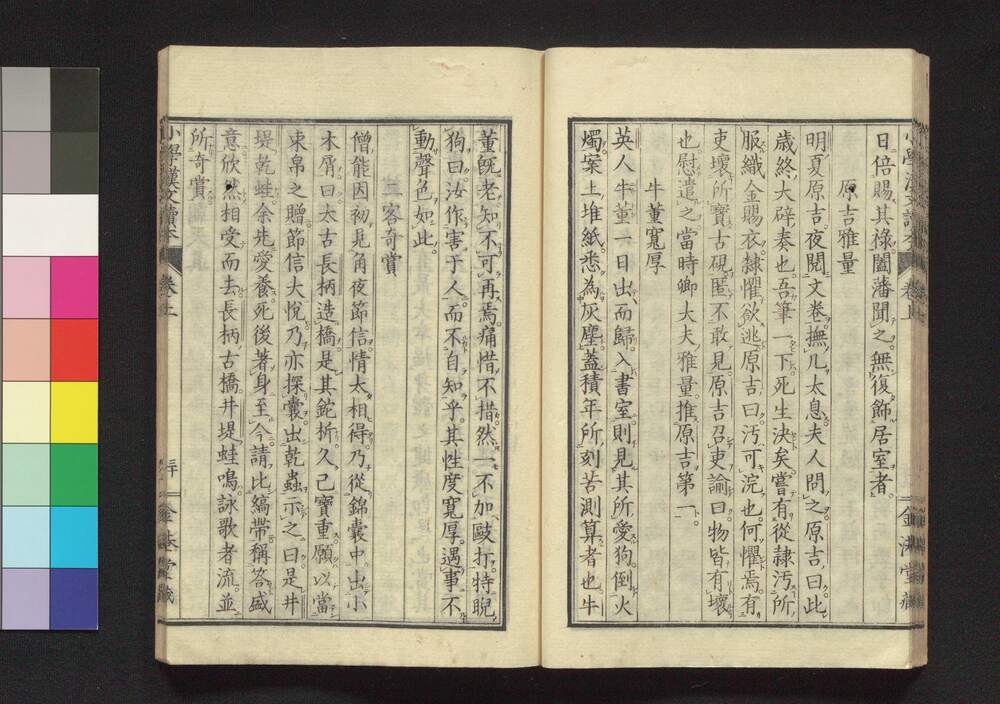 日倍賜其祿闔藩聞之無復飾居室者
原吉雅量
明夏原吉夜閱文卷撫几太息夫人問之原吉曰此
歲終大辟奏也吾筆一下死生決矣嘗有從隸汚所
服織金賜衣隸懼欲逃原吉曰汚可浣也何懼焉有
吏壞所寶古硯匿不敢見原吉召吏諭曰物皆有壞
也慰遣之當時卿大夫雅量推原吉第一
牛董寬厚
英人牛董一日出而歸入書室則見其所愛狗倒火
燭案上堆紙悉為灰塵蓋積年所刻苦測算者也牛
金港堂藏
董旣老知不可再焉痛惜不措然一不加毆打特睨
狗曰汝作害于人而不自知乎其性度寬厚遇事不
動聲色如此
三客奇賞
僧能因初見角夜節信情太相得乃從錦囊中出小
木屑曰太古長柄造橋是其鉈析久己寶重願以當
束帛之贈節信大悅乃亦探囊出乾蟲示之曰是井
堤乾蛙余先愛養死後著身至今請比縞帶稱答盛
意欣然相受而去長柄古橋井堤蛙鳴詠歌者流並
所奇賞
小學漢文讀本 卷上 金港堂藏